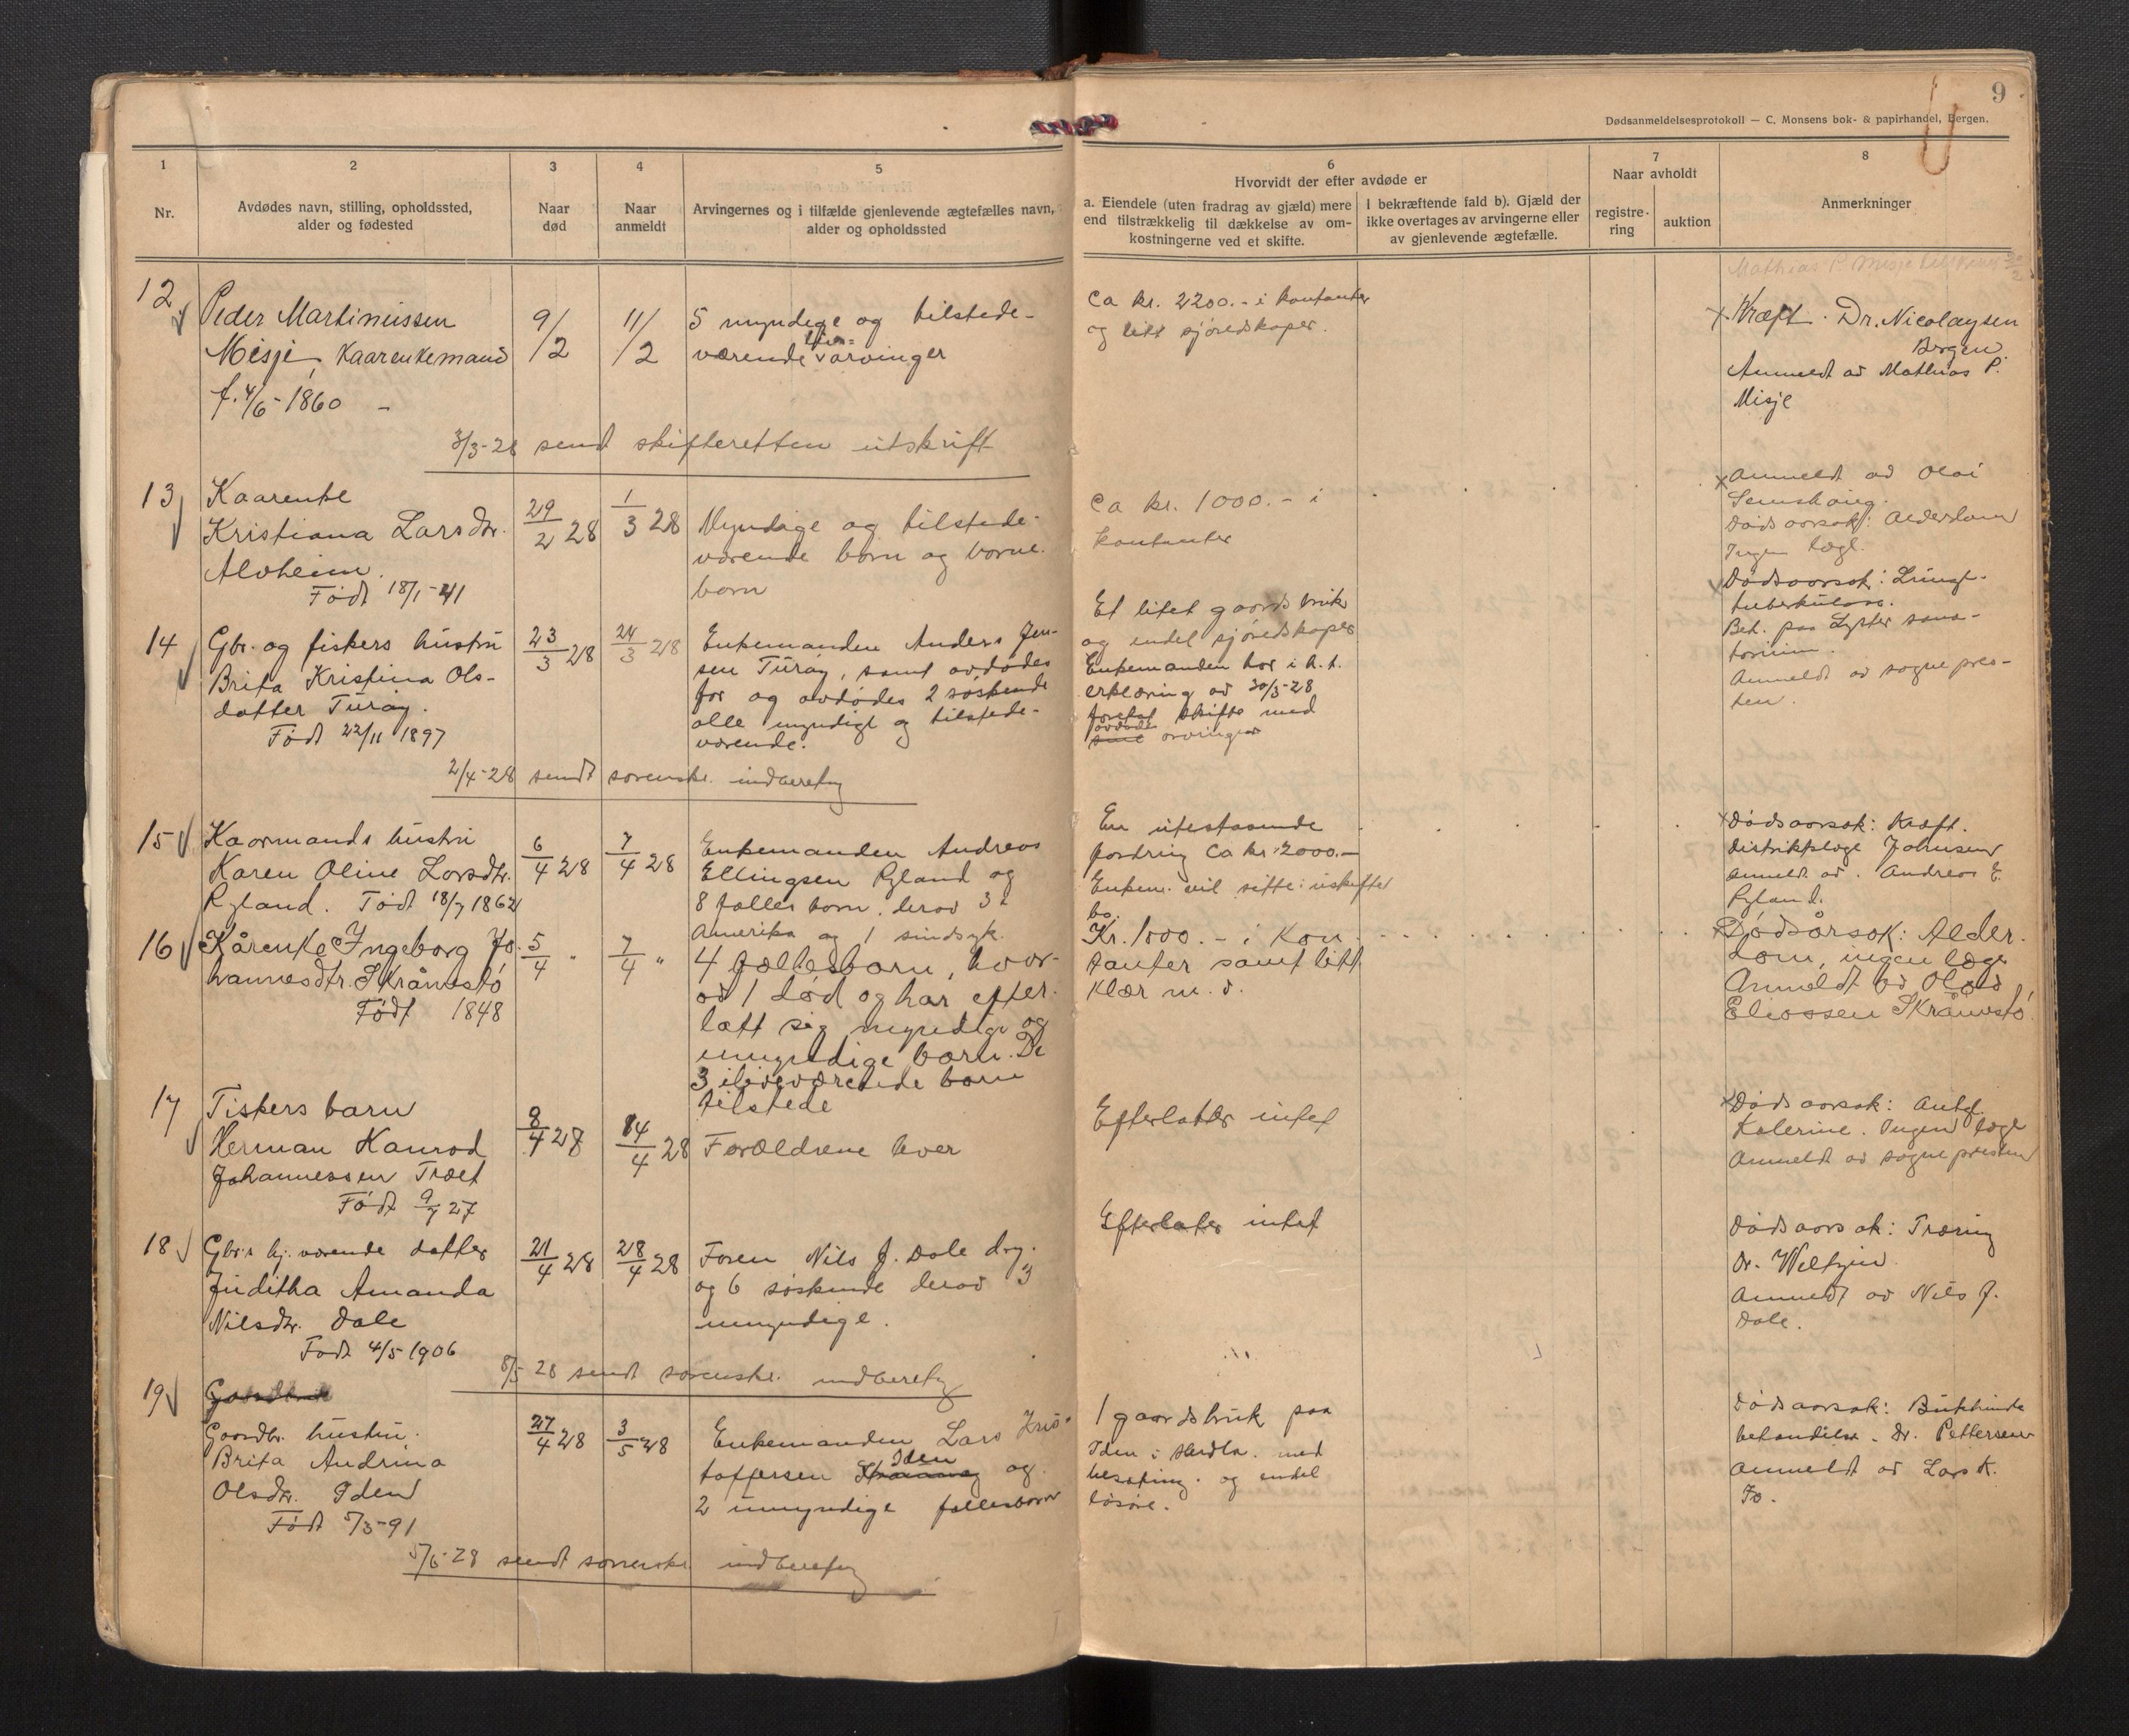 9
Dødsanmeldelsesprotokoll — C. Monsens bok- & papirhandel, Bergen.
1
2
3
4
5
6
7
8
Nr.
Avdødes navn, stilling, opholdssted,
alder og fødested
Naar
død
Naar
anmeldt
Arvingernes og i tilfælde gjenlevende ægtefælles navn,
alder og opholdssted
Hvorvidt der efter avdøde er
a. Eiendele (uten fradrag av gjæld) mere
end tilstrækkelig til dækkelse av om-
kostningerne ved et skifte.
I bekræftende fald b). Gjæld der
ikke overtages av arvingerne eller
av gjenlevende ægtefælle.
Naar avholdt
registre-
ring
auktion
Anmerkninger
12
Peder Martinussen
Misje, Kaarenkemand
f. 4/6 - 1860 -
9/2
11/2
5 myndige og tilstede-
værende arvinger
Ca kr. 2200.- i kontanter
og litt sjøredskaper.
Mathias P. Misje
Kræft. Dr. Nicolaysen
Bergen.
Anmeldt av Mathias P.
Misje
3/3-28 sendt skifteretten utskrift
13
Kaarenke
Kristiana Larsdtr.
Alvheim.
Født 18/1-41
29/2 28
1/3 28
Myndige og tilstede-
værende born og borne-
born
Ca kr. 1000.- i
kontanter
Anmeldt av Olai
Dødsaarsak: Alderdom
Ingen læge.
14
Gbr. og fiskers hustru
Brita Kristina Ols-
datter Turøy.
Født 22/11 1897
23/3 28
24/3 28
Enkemanden Anders Jen-
sen Turøy, samt avdødes
far og avdødes 2 søskende
alle myndige og tilstede-
værende.
Et litet gaardsbruk
og endel sjøredskaper
Enkemanden har i h.t.
erklæring av 30/3-28
foretat skifte med
avdødes
sine arvinger
Dødsaarsak: Lunge-
tuberkulose.
Beh. paa Lyster sana-
torium.
Anmeldt av sognepres-
ten.
2/4-28 sendt sorenskr. indberetg
15
Kaarmands hustru
Karen Oline Larsdtr.
Ryland. Født 18/7 1862
6/4 28
7/4 28
Enkemanden Andreas
Ellingsen Ryland og
8 fælles born. derav 3 i
Amerika og 1 sindsyk.
En utestaaende
fordring Ca kr. 2000.-
Enkem. vil sitte i uskiftet
bo.
Dødsaarsak: Kræft.
Distriktslæge Johnsen
Anmeldt av. Andreas E.
Ryland.
16
Kårenke Ingeborg Jo-
hannesdtr. Skråmestø
Født 1848
5/4 "
7/4 "
4 fællesbarn, hvor-
av 1 død og har efter-
latt sig myndige og
umyndige barn. De
3 ilivværende barn
tilstede
Kr. 1000.- i Kon-
tanter samt litt
klær m. v.
Dødsårsak: Alder-
dom, ingen læge
Anmeldt av Olai
Eliassen Skråmestø
17
Fiskers barn
Herman Konrad
Johannessen Træet
Født 9/7 27
8/4 28
14/4 28
Forældrene lever
Efterlater intet
Dødsaarsak: Antgl.
Katerine. Ingen læge
Anmeldt av sognepresten
18
Gbr.s hj. værende datter
Juditha Amanda
Nilsdtr. Dale
Født 4/5 1906
21/4 28
28/4 28
Faren Nils J. Dale
og 6 søskende derav 3
umyndige.
Efterlater intet
Dødsaarsak: Træring
Dr. Weltzin.
Anmeldt av Nils J.
Dale.
8/5 28 sendt sorenskr. indberetg
19
Gaardbr. hustru.
Brita Andrina
Olsdtr. Iden
Født 5/3-91
27/4 28
3/5 28
Enkemanden Lars Kris-
Iden
toffersen og
2 umyndige fællesborn
1 gaardsbruk paa
Iden i Herdla. med
besætning. og endel
løsøre.
Dødsaarsak: Bukhinde
behandiler. Dr. Pettersen
Anmeldt av Lars K.
5/6-28 sendt sorenskr. indberetg